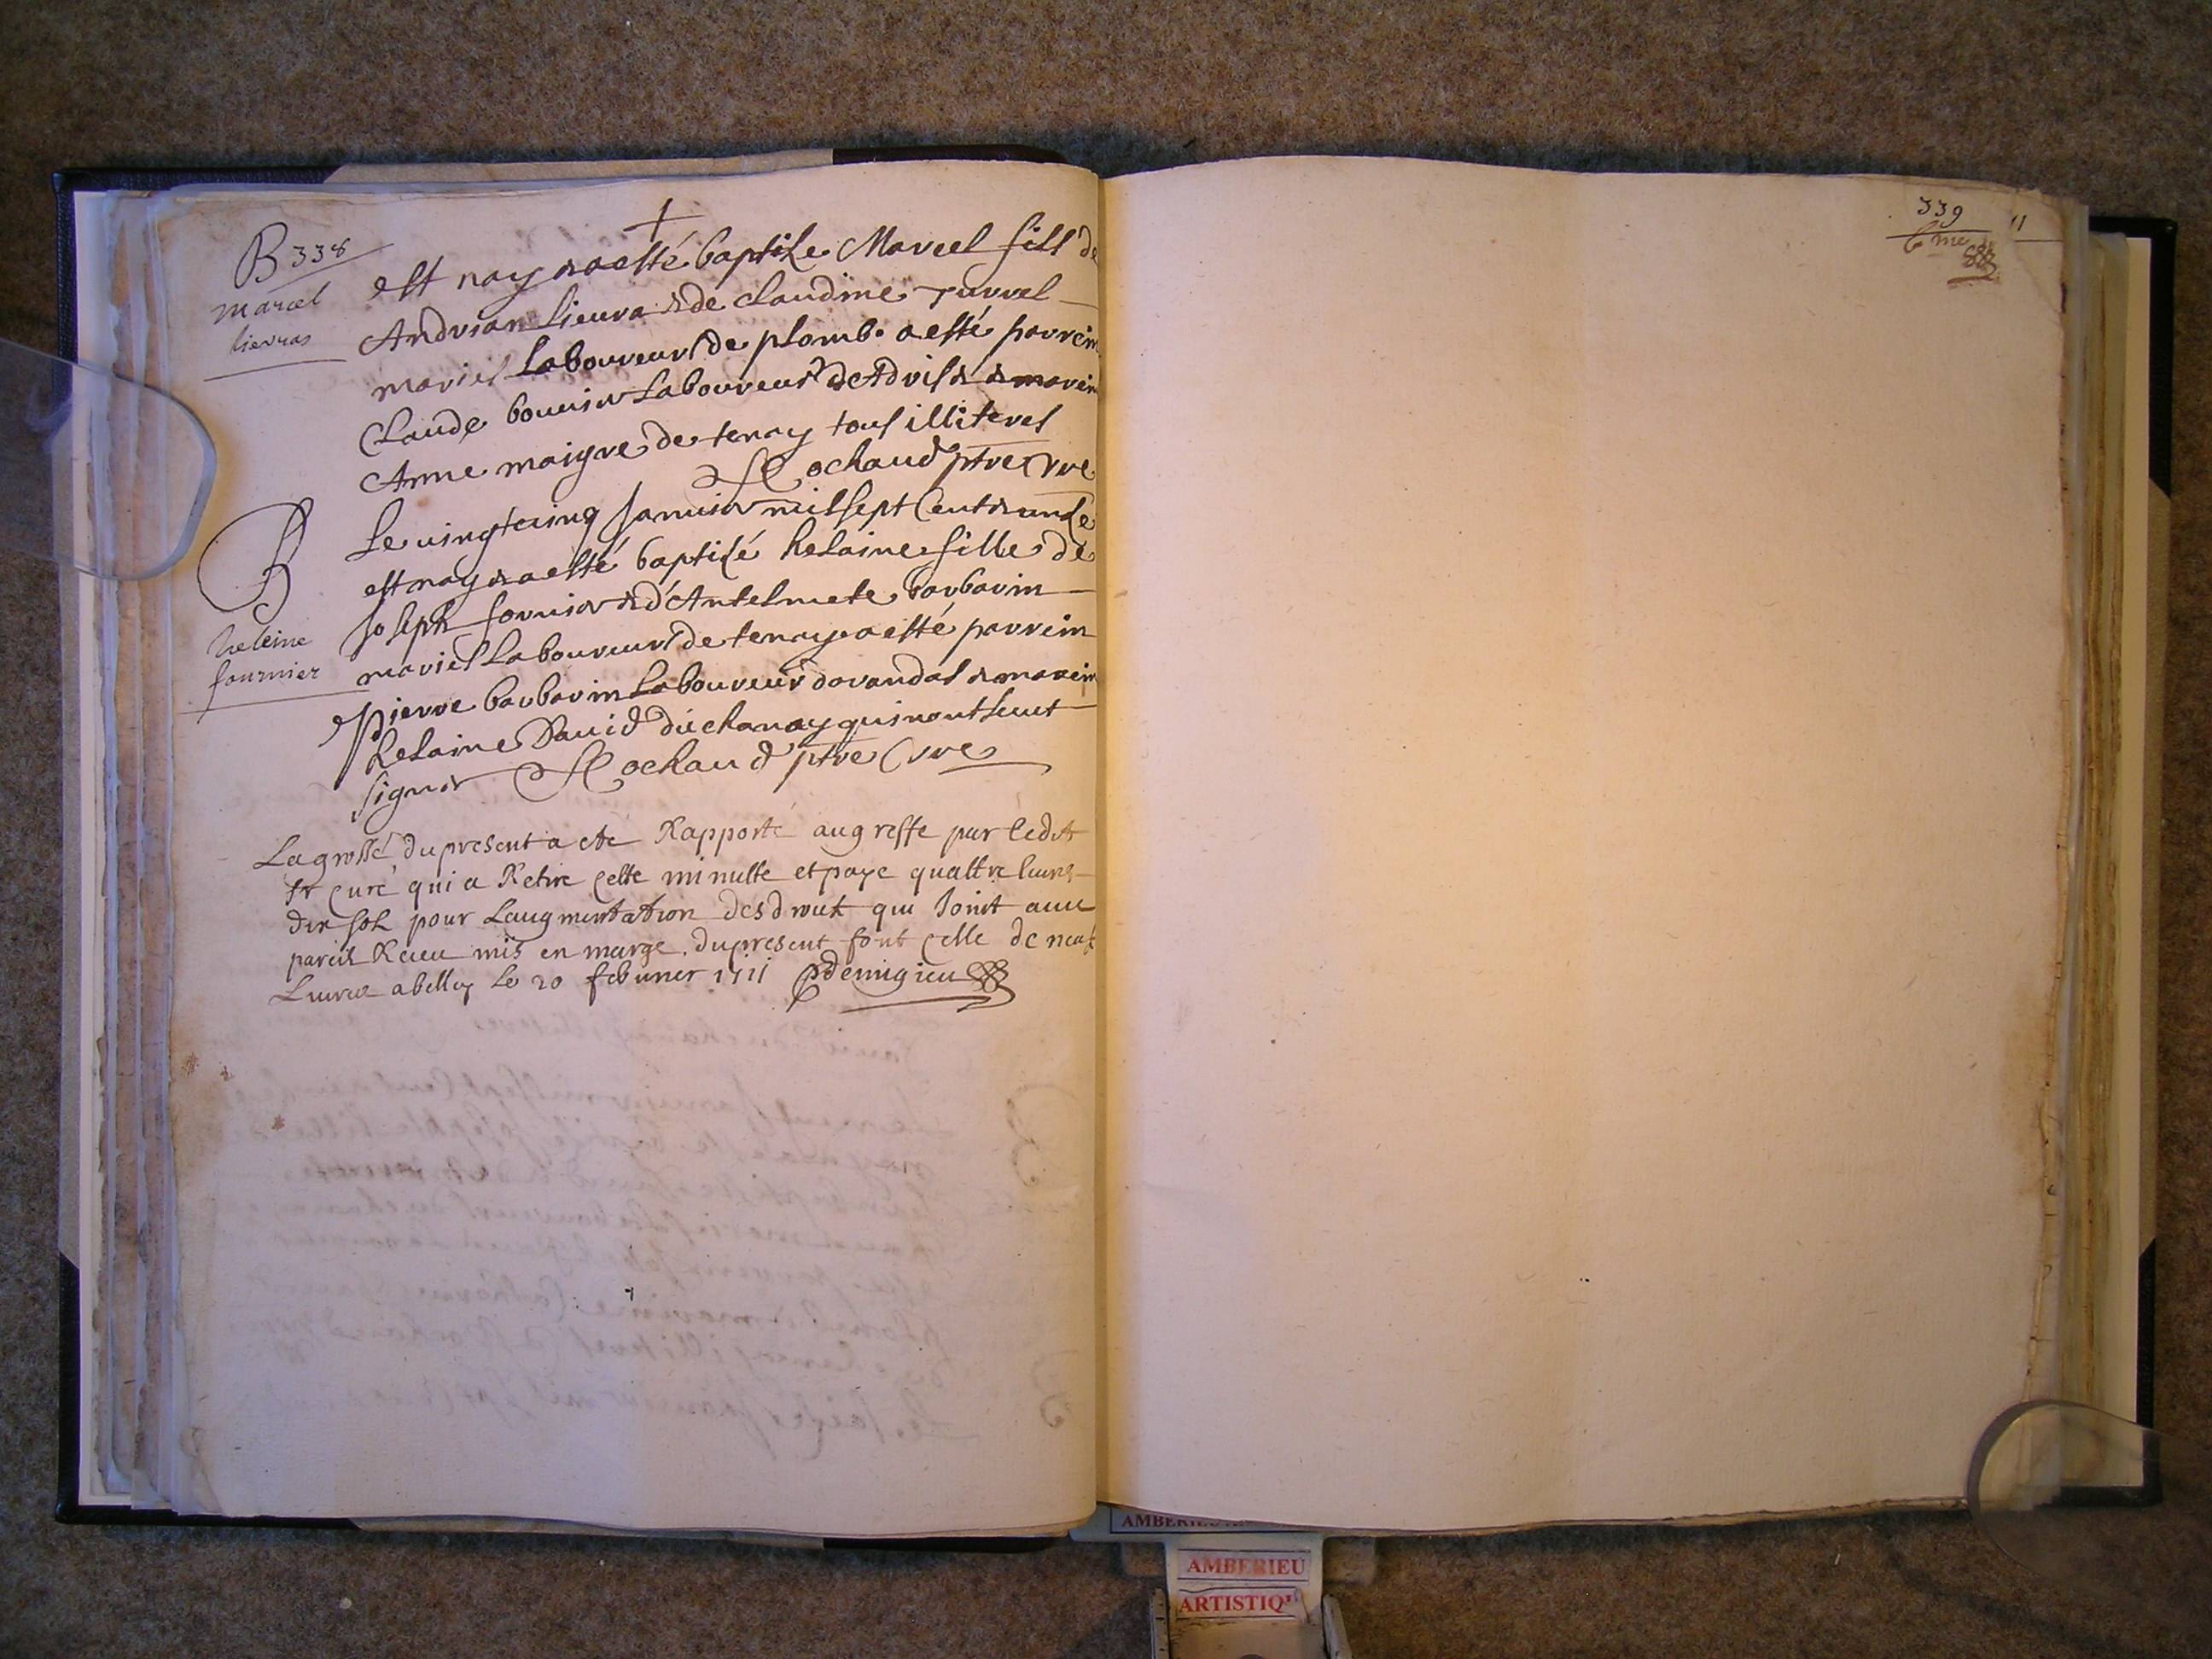 B 338
marcel
lievras
est nay & a esté baptize Marcel fils de
Andrian Lieura & de Claudine
maries laboureurs de plomb. a esté parrein
Claude bouvier Laboureur & marein
Anne maigre de tenay tous illiteres
Rochaud ptre Cure
B
heleine
fournier
Le vingt cinq Janvier mil sept Cent & unze
est nay & a esté baptizé helaine fille de
Joseph fornier & d'Antelmete barbarin
maries Laboureurs de tenay a esté parrein
Pierre barbarin Laboureur darandas & marein
helaine David du chanay qui nont sceut
signer Rochaud ptre Cure
La grosse du present a ete Rapporté au greffe par ledit
sr curé qui a Retire cette minutte et paye quattre livres
dix sols pour Laugmentation des droits qui joint avec
pareil Receu mis en marge du present font celle de neuf
Livres a belley le 20 febvrier 1711
339
6 me
11
AMBERIEU
AMBERIEU
ARTISTIQ